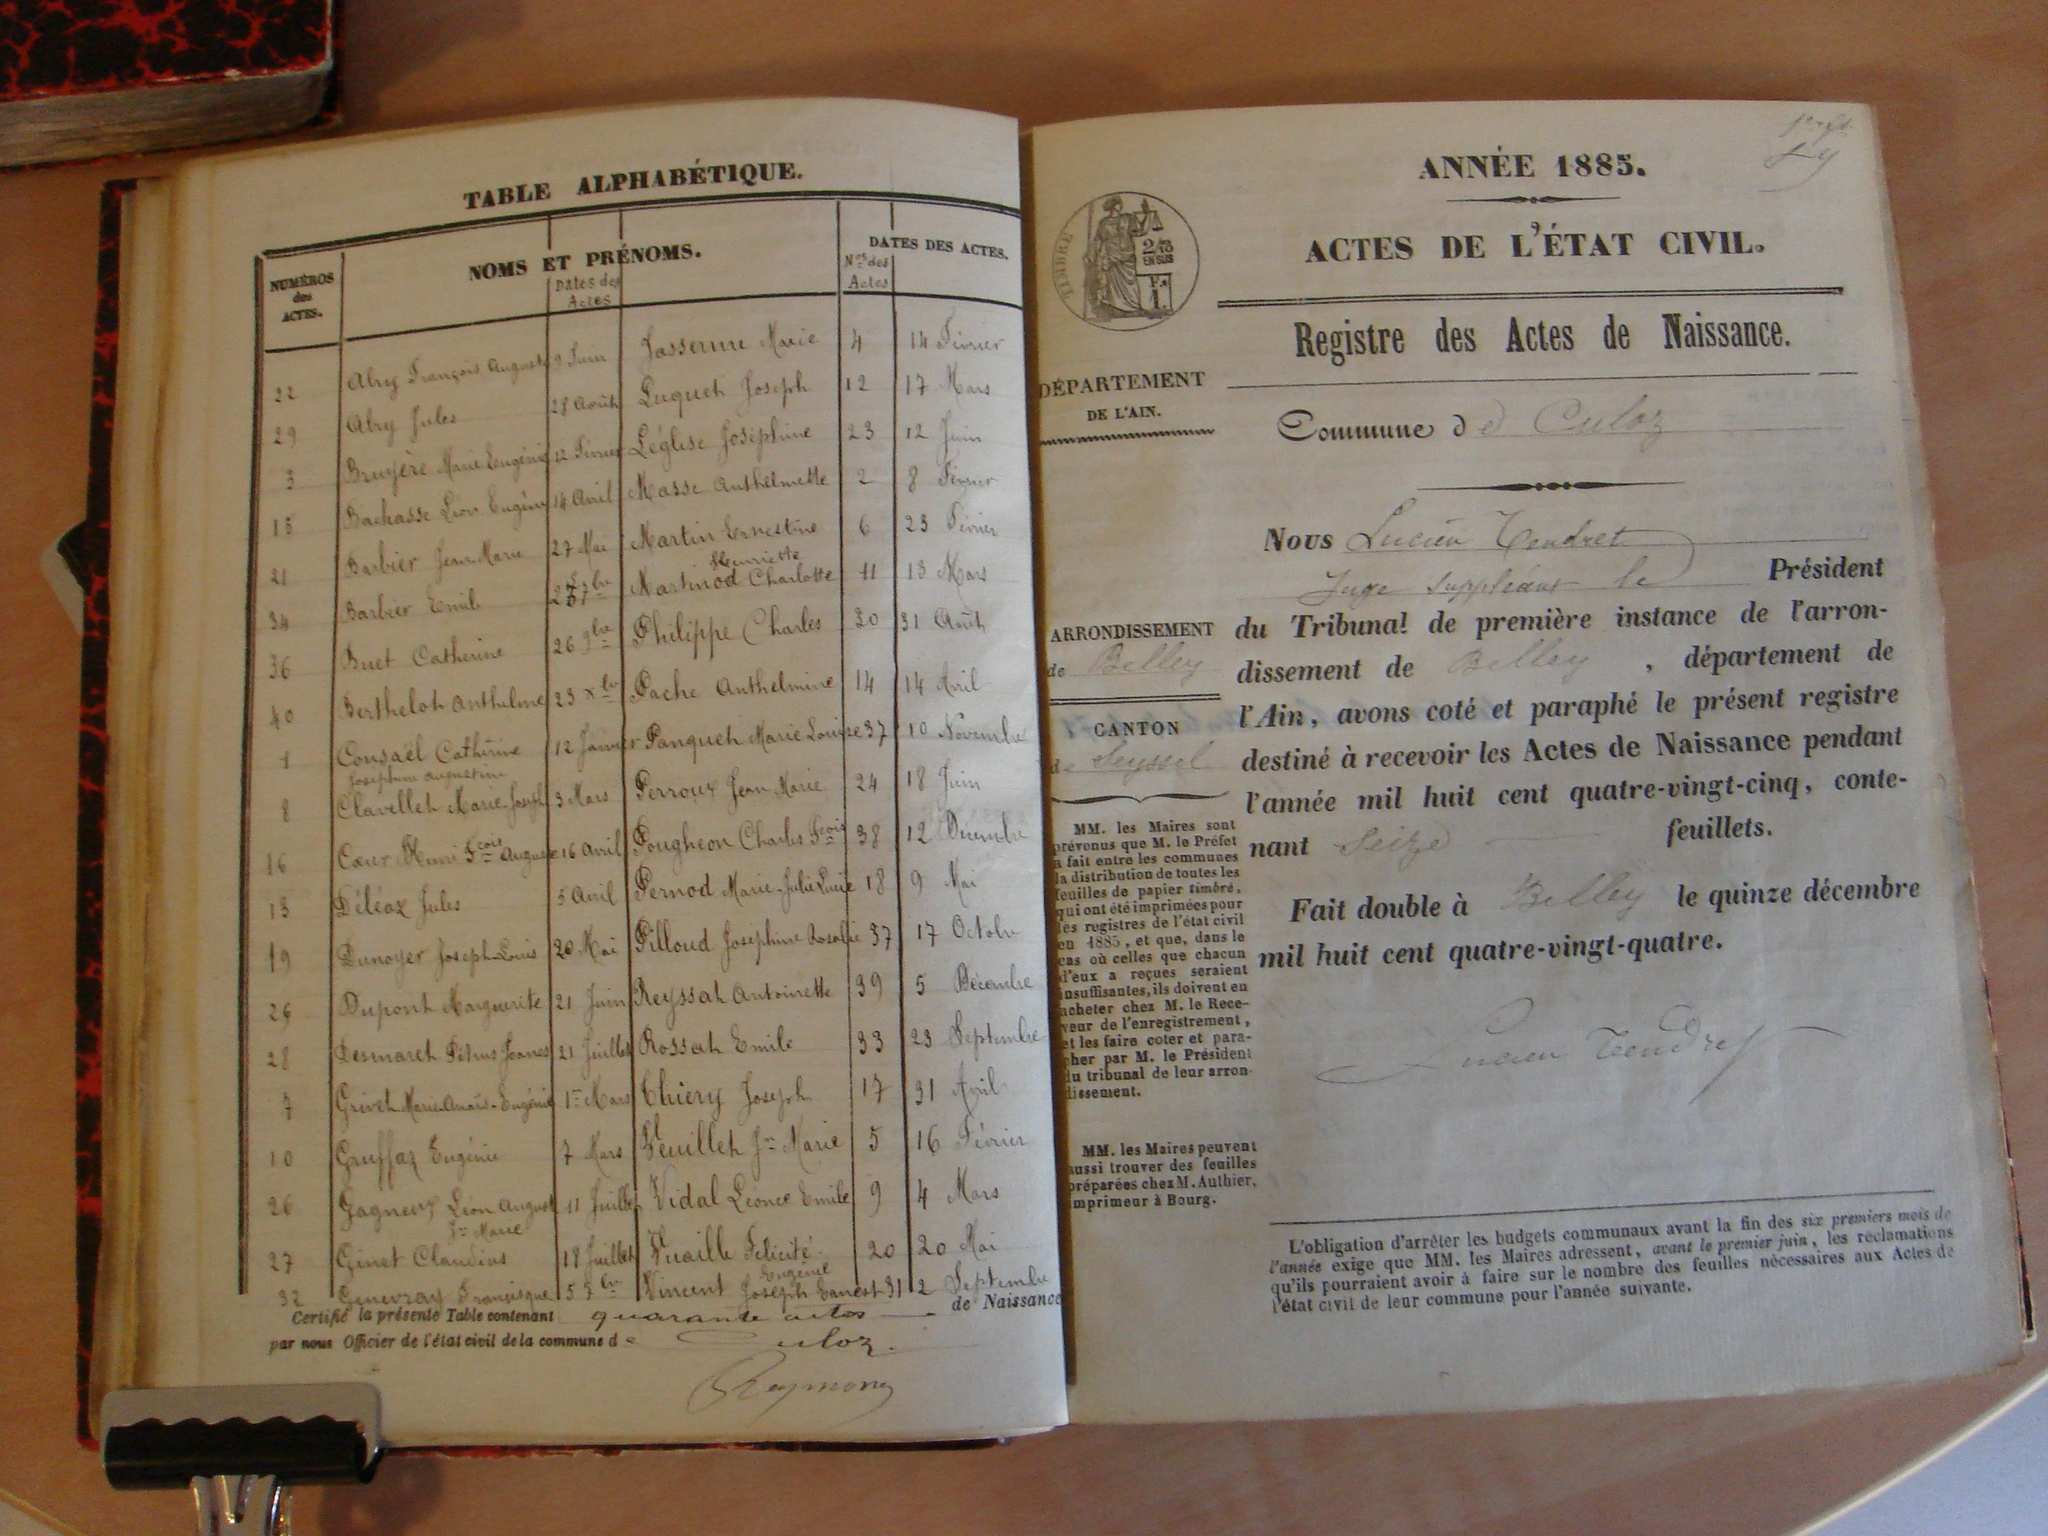 TABLE ALPHABÉTIQUE.
NUMÉROS des ACTES. NOMS ET PRÉNOMS. Dates des Actes Nos des Actes DATES DES ACTES.
22 Alry François Auguste 9 Juin Jasserme Marie 4 14 Février
29 Alry Jules 28 Août Luquet Joseph 12 17 Mars
3 Bruyère Marie Eugénie 12 Février Léglise Joséphine 23 12 Juin
15 Bachasse Léon Eugène 14 Avril Masse Anthelmette 2 8 Février
21 Barbier Jean-Marie 27 Mai Martin Ernestine 6 23 Février
Henriette
34 Barbier Emile Martinod Charlotte 11 13 Mars
36 Buet Catherine 26 9bre Philippe Charles 30 31 Août
40 Berthelot Anthelme 23 xbre Pache Anthelmine 14 14 Avril
1 Consaël Catherine 12 Janvier Panquet Marie Louise 37 10 Novembre
Joséphine Augustine
8 Clavellet Marie Joseph 3 Mars Perroux Jean Marie 24 18 Juin
16 Cœur Fcois Auguste 16 Avril Pougheon Charles Fcois 38 12 Décembre
13 Déléaz Jules 5 Avril Pernod Marie-Julie Lucie 18 9 Mai
19 Dunoyer Joseph-Louis 20 Mai Pilloud Joséphine Rosalie 37 17 Octobre
26 Dupont Marguerite 21 Juin Reyssat Antoinette 39 5 Décembre
28 Desmaret Pétrus Joanes 21 Juillet Rossat Emile 33 23 Septembre
7 Grivet Marie Anaïs-Eugénie 1er Mars Thiery Joseph 17 31 Avril
10 Gruffaz Eugénie 7 Mars Veuillet Jn Marie 5 16 Février
26 Gagneux Léon August 11 Juillet Vidal Léonce Emile 9 4 Mars
Jn Marie
27 Ginet Claudius 18 Juillet Vuaille Félicité 20 20 Mai
Eugénie
32 Genevray Françisque 5 7bre Vincent Joseph Ernest 31 2 Septembre
Certifié la présente Table contenant quarante actes de Naissance
par nous Officier de l'état civil de la commune de Culoz.
Reymond
ANNÉE 1885.
ACTES DE L'ÉTAT CIVIL.
TIMBRE
2/10
EN SUS
1.
Registre des Actes de Naissance.
DÉPARTEMENT
DE L'AIN.
Commune de Culoz
Nous Lucien Tendret
Juge Suppléant le Président
ARRONDISSEMENT
de Belley
CANTON
de Seyssel
du Tribunal de première instance de l'arron-
dissement de Belley, département de
l'Ain, avons coté et paraphé le présent registre
destiné à recevoir les Actes de Naissance pendant
l'année mil huit cent quatre-vingt-cinq, conte-
nant Seize feuillets.
Fait double à Belley le quinze décembre
mil huit cent quatre-vingt-quatre.
Lucien Tendret
MM. les Maires sont
prévenus que M. le Préfet
a fait entre les communes
la distribution de toutes les
feuilles de papier timbré,
qui ont été imprimées pour
les registres de l'état civil
en 1885, et que, dans le
cas où celles que chacun
d'eux a reçues seraient
insuffisantes, ils doivent en
acheter chez M. le Rece-
veur de l'enregistrement,
et les faire coter et para-
pher par M. le Président
du tribunal de leur arron-
dissement.
MM. les Maires peuvent
aussi trouver des feuilles
préparées chez M. Authier,
imprimeur à Bourg.
L'obligation d'arrêter les budgets communaux avant la fin des six premiers mois de
l'année exige que MM. les Maires adressent, avant le premier juin, les réclamations
qu'ils pourraient avoir à faire sur le nombre des feuilles nécessaires aux Actes de
l'état civil de leur commune pour l'année suivante.